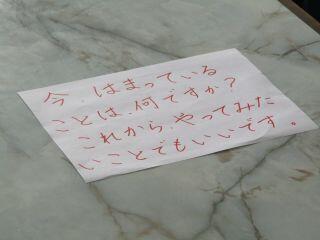 今、はまっている
ことは、何ですか？
これから、やってみた
いことでもいいです。